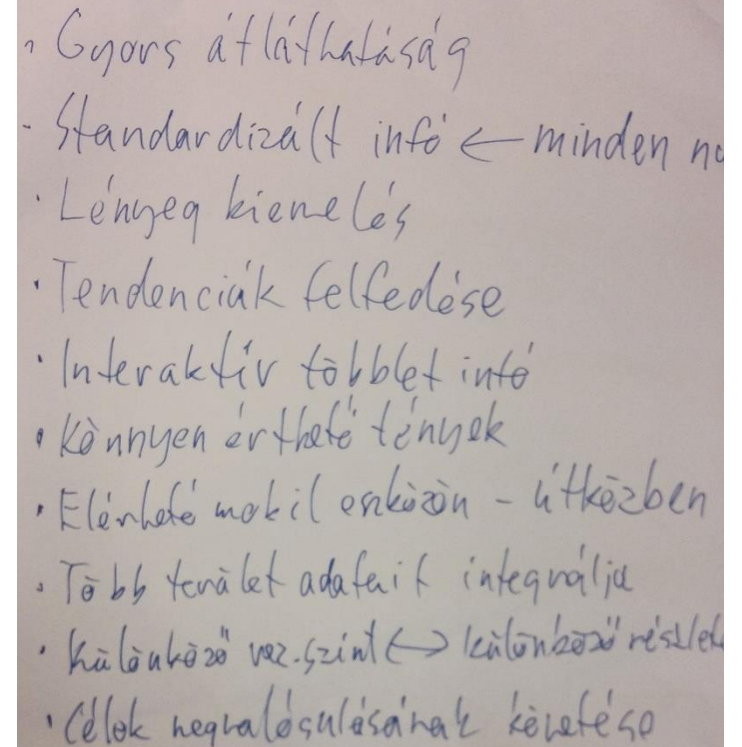 · Gyors átláthatóság
- Standardizált infó ← minden
· Lényeg kiemelés
· Tendenciák felfedése
· Interaktív többlet infó
· Könnyen érthető tények
· Elérhető mobil eszközön - útközben
· Több terület adatait integrálja
· Különböző vez. szint ↔ különböző
· Célok megvalósulásának követése